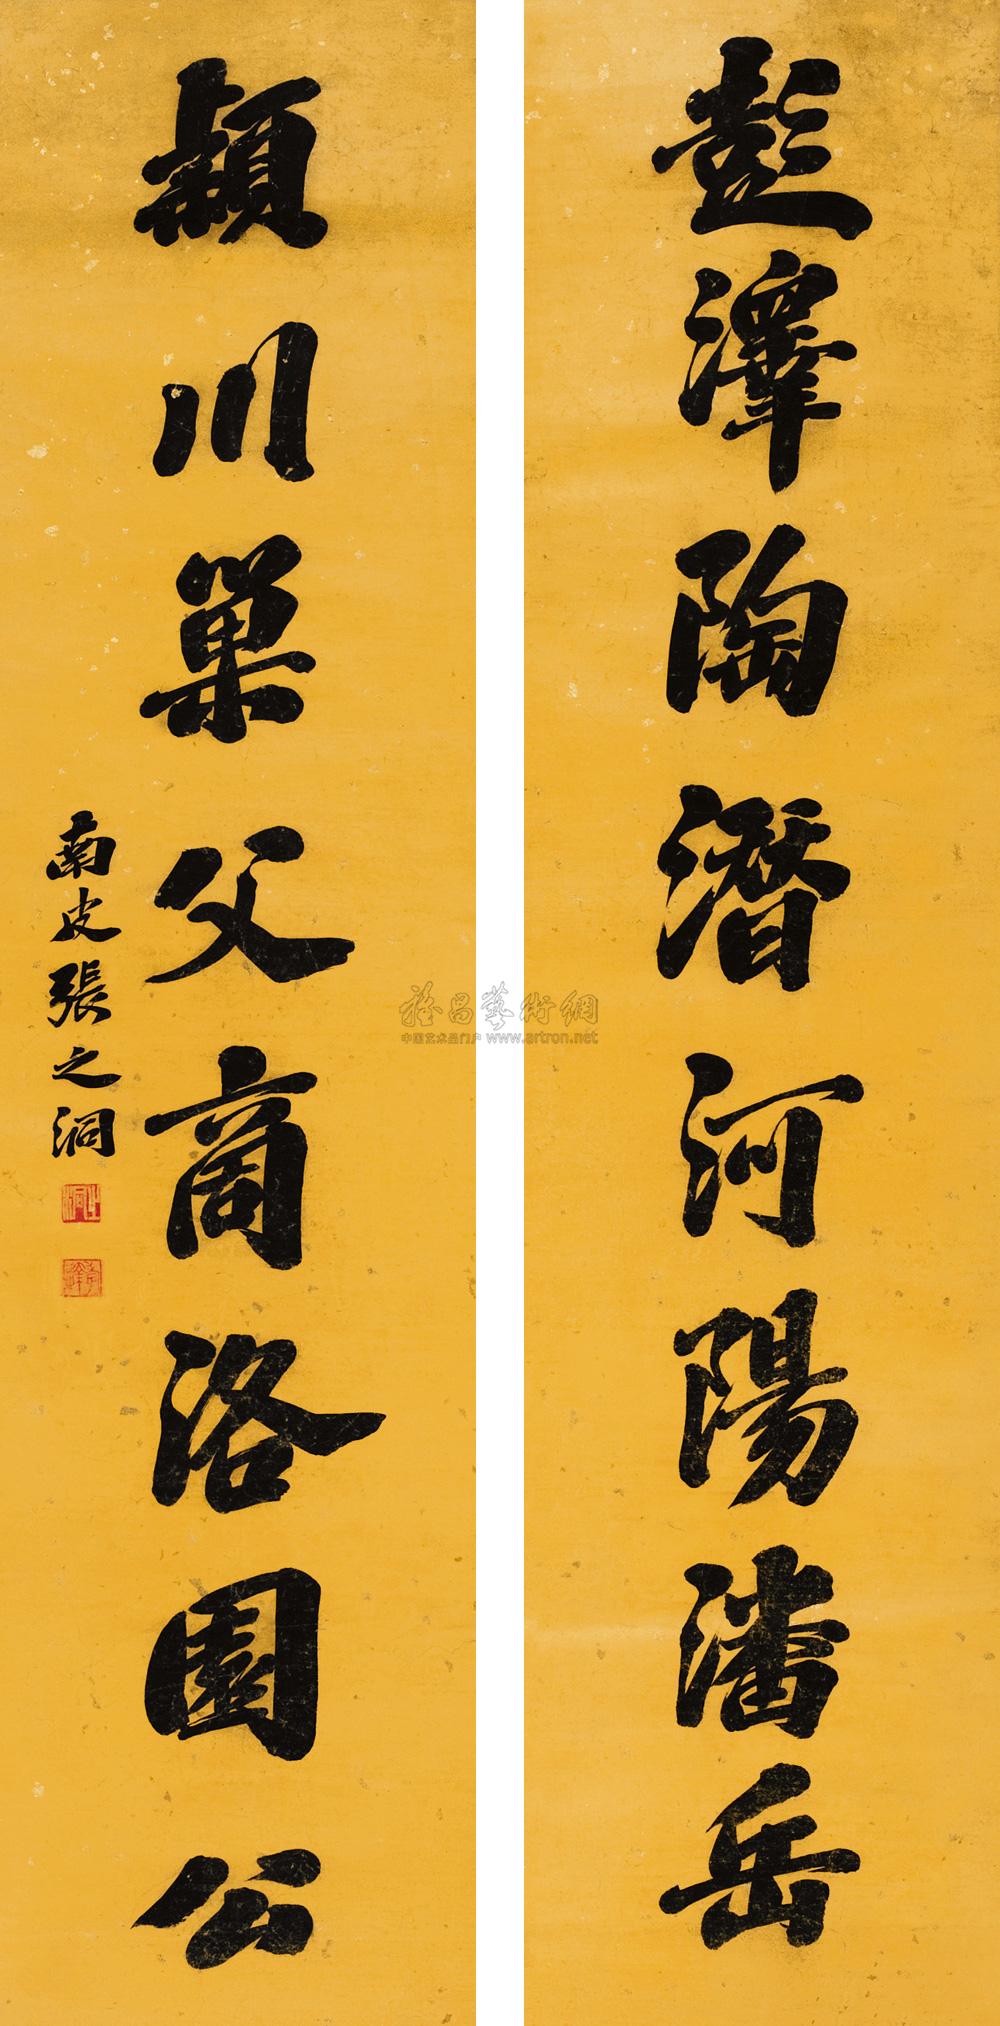 彭澤陶潛河陽潘岳
潁川巢父商洛園公
南皮張之洞
雅昌藝術網
中国艺术品门户 www.artron.net